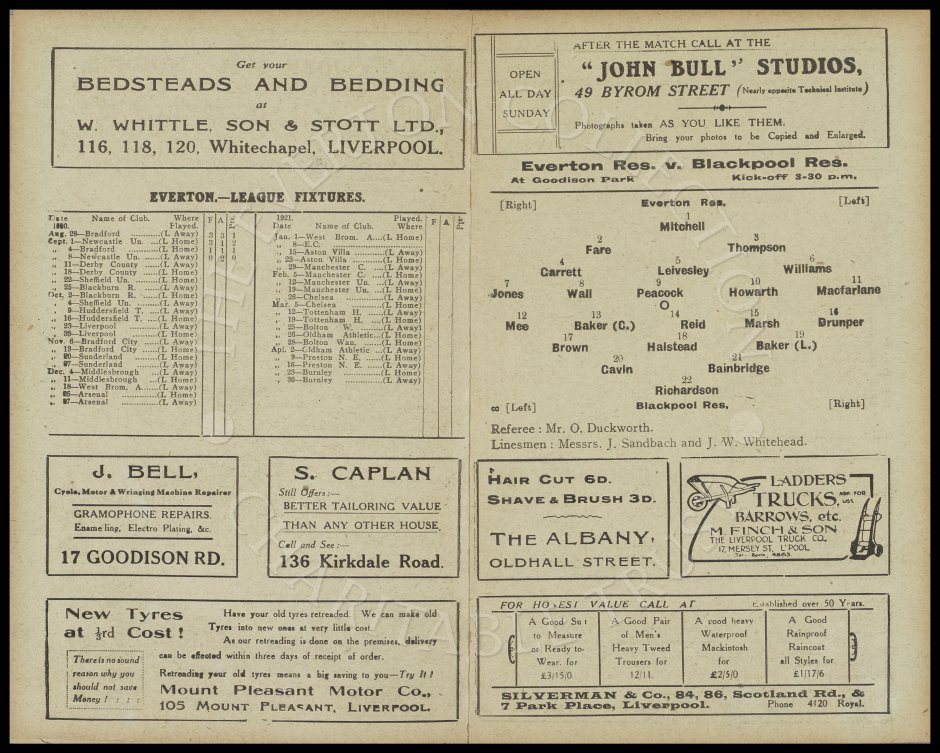 Get your
BEDSTEADS AND BEDDING
at
W. WHITTLE, SON & STOTT LTD.,
116, 118, 120, Whitechapel, LIVERPOOL.
EVERTON.—LEAGUE FIXTURES.
Date Name of Club. Where F A Pts.
1920. Played.
Aug. 28—Bradford ............(L Away) 3 3 1
Sept. 1—Newcastle Un. ...(L Home) 3 1 2
„ 4—Bradford ............(L Home) 1 1 1
„ 8—Newcastle Un. ...(L Away) 0 2 0
„ 11—Derby County ......(L Away)
„ 18—Derby County ......(L Home)
„ 22—Sheffield Un. ......(L Home)
„ 25—Blackburn R. ......(L Away)
Oct. 2—Blackburn R. ......(L Home)
„ 4—Sheffield Un. ......(L Away)
„ 9—Huddersfield T. ...(L Away)
„ 16—Huddersfield T. ...(L Home)
„ 23—Liverpool ............(L Away)
„ 30—Liverpool ............(L Home)
Nov. 6—Bradford City ......(L Away)
„ 13—Bradford City ......(L Home)
„ 20—Sunderland .........(L Home)
„ 27—Sunderland .........(L Away)
Dec. 4—Middlesbrough ...(L Away)
„ 11—Middlesbrough ...(L Home)
„ 18—West Brom. A......(L Away)
„ 25—Arsenal ...............(L Home)
„ 27—Arsenal ...............(L Away)
1921. Played.
Date Name of Club. Where F A Pts
Jan. 1—West Brom. A....(L Home)
„ 8—E.C.
„ 15—Aston Villa ............(L Away)
„ 22—Aston Villa ............(L Home)
„ 29—Manchester C. ...(L Away)
Feb. 5—Manchester C. ...(L Home)
„ 12—Manchester Un. ...(L Away)
„ 19—Manchester Un. ...(L Home)
„ 26—Chelsea ...............(L Away)
Mar. 5—Chelsea ...............(L Home)
„ 12—Tottenham H. ......(L Away)
„ 19—Tottenham H. ......(L Home)
„ 25—Bolton W. ......(L Away)
„ 26—Oldham Athletic...(L Home)
„ 28—Bolton Wan. ......(L Home)
Apl. 2—Oldham Athletic ...(L Away)
„ 9—Preston N. E. ......(L Home)
„ 16—Preston N. E. ......(L Away)
„ 23—Burnley ...............(L Home)
„ 30—Burnley ...............(L Away)
J. BELL,
Cycle, Motor & Wringing Machine Repairer
GRAMOPHONE REPAIRS.
Enameling, Electro Plating, &c.
17 GOODISON RD.
S. CAPLAN
Still Offers:—
BETTER TAILORING VALUE
THAN ANY OTHER HOUSE
Call and See:—
136 Kirkdale Road.
New Tyres
at ⅓rd Cost!
There is no sound
reason why you
should not save
Money! : : :
Have your old tyres retreaded. We can make old
Tyres into new ones at very little cost.
As our retreading is done on the premises, delivery
can be effected within three days of receipt of order.
Retreading your old tyres means a big saving to you—Try It!
Mount Pleasant Motor Co.,
105 MOUNT PLEASANT, LIVERPOOL.
OPEN
ALL DAY
SUNDAY
AFTER THE MATCH CALL AT THE
"JOHN BULL" STUDIOS,
49 BYROM STREET (Nearly opposite Technical Institute)
Photographs taken AS YOU LIKE THEM.
Bring your photos to be Copied and Enlarged.
Everton Res. v. Blackpool Res.
At Goodison Park Kick-off 3-30 p.m.
[Right] Everton Res, [Left]
1
Mitchell
2 3
Fare Thompson
4 5 6
Garrett Leivesley Williams
7 8 9 10 11
Jones Wall Peacock Howarth Macfarlane
O
12 13 14 15 16
Mee Baker (C.) Reid Marsh Drunper
17 18 19
Brown Halstead Baker (L.)
20 21
Gavin Bainbridge
22
Richardson
[Left] Blackpool Res, [Right]
Referee : Mr. O. Duckworth.
Linesmen : Messrs. J. Sandbach and J. W. Whitehead.
HAIR CUT 6D.
SHAVE & BRUSH 3D.
THE ALBANY,
OLDHALL STREET.
LADDERS
TRUCKS, ASK FOR LIST
BARROWS, etc.
M. FINCH & SON
THE LIVERPOOL TRUCK CO.,
17, MERSEY ST, L'POOL
Tel. Bank, 4863.
FOR HONEST VALUE CALL AT Established over 50 Years.
A Good Suit
to Measure
or Ready-to-
Wear, for
£3/15/0
A Good Pair
of Men's
Heavy Tweed
Trousers for
12/11.
A good heavy
Waterproof
Mackintosh
for
£2/5/0
A Good
Rainproof
Raincoat
all Styles for
£1/17/6
SILVERMAN & Co., 84, 86, Scotland Rd., &
7 Park Place, Liverpool. Phone 4120 Royal.
© THE EVERTON COLLECTION CHARITABLE TRUST